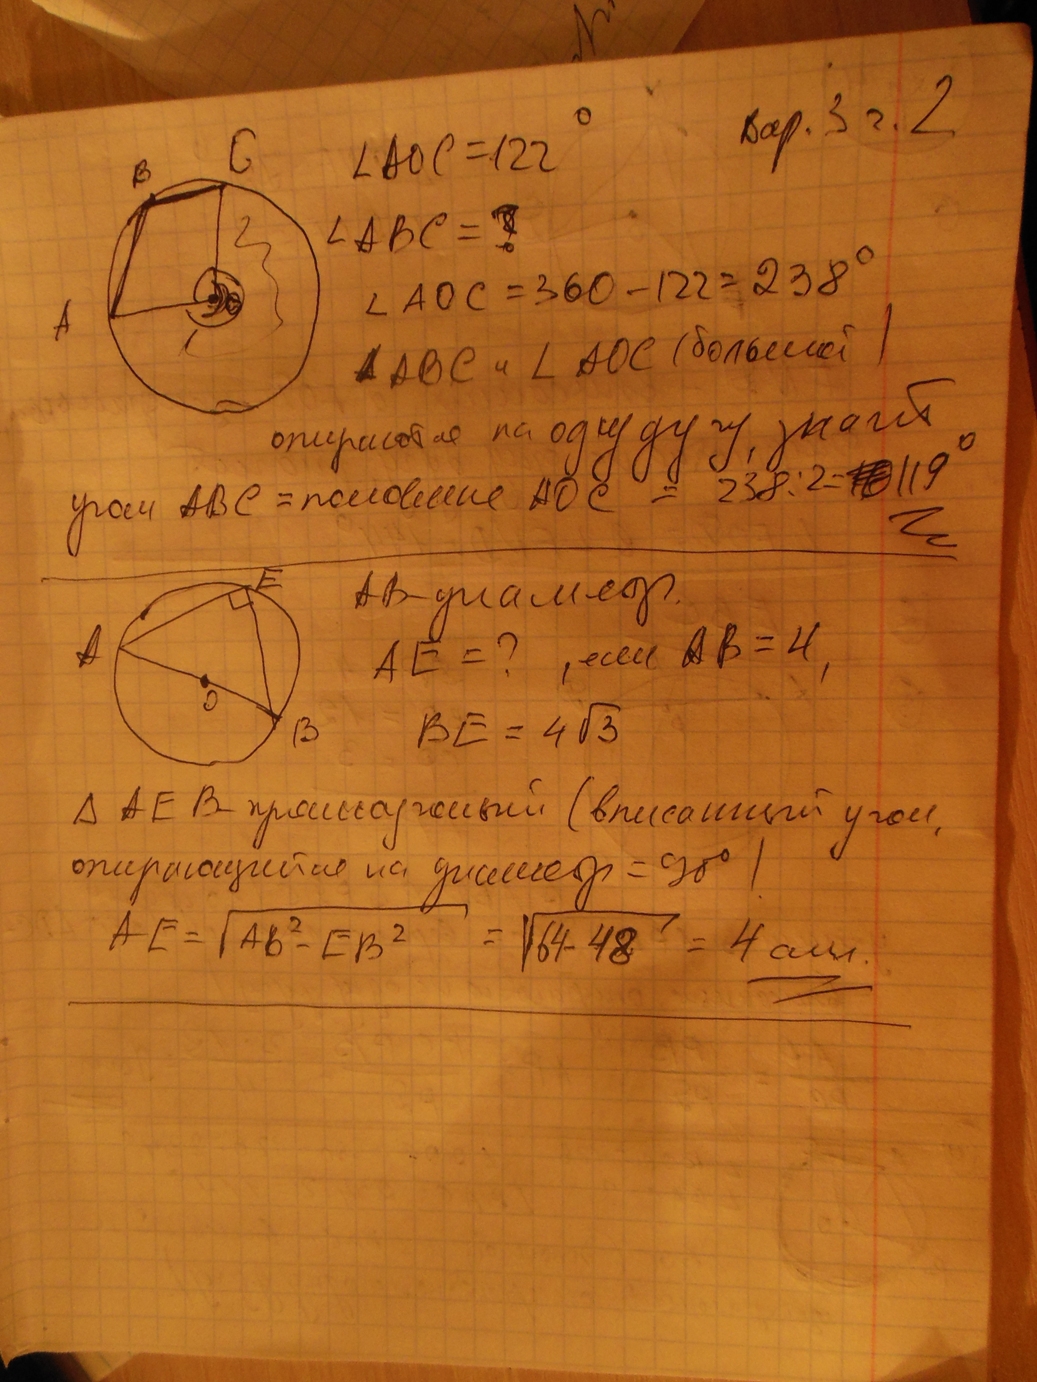 Вар. 3 г. 2
B C
∠AOC = 122°
∠ABC = ?
∠AOC = 360 - 122 = 238°
A O
1
2
∠ABC и ∠AOC (большой)
опираются на одну дугу, значит
угол ABC = половине AOC = 238:2= 119°
E
A
O
B
AB-диаметр.
AE = ? , если AB = 4,
BE = 4√3
Δ AEB - прямоугольный (вписанный угол,
опирающийся на диаметр = 90°)
AE = √AB² - EB² = √64 - 48 = 4